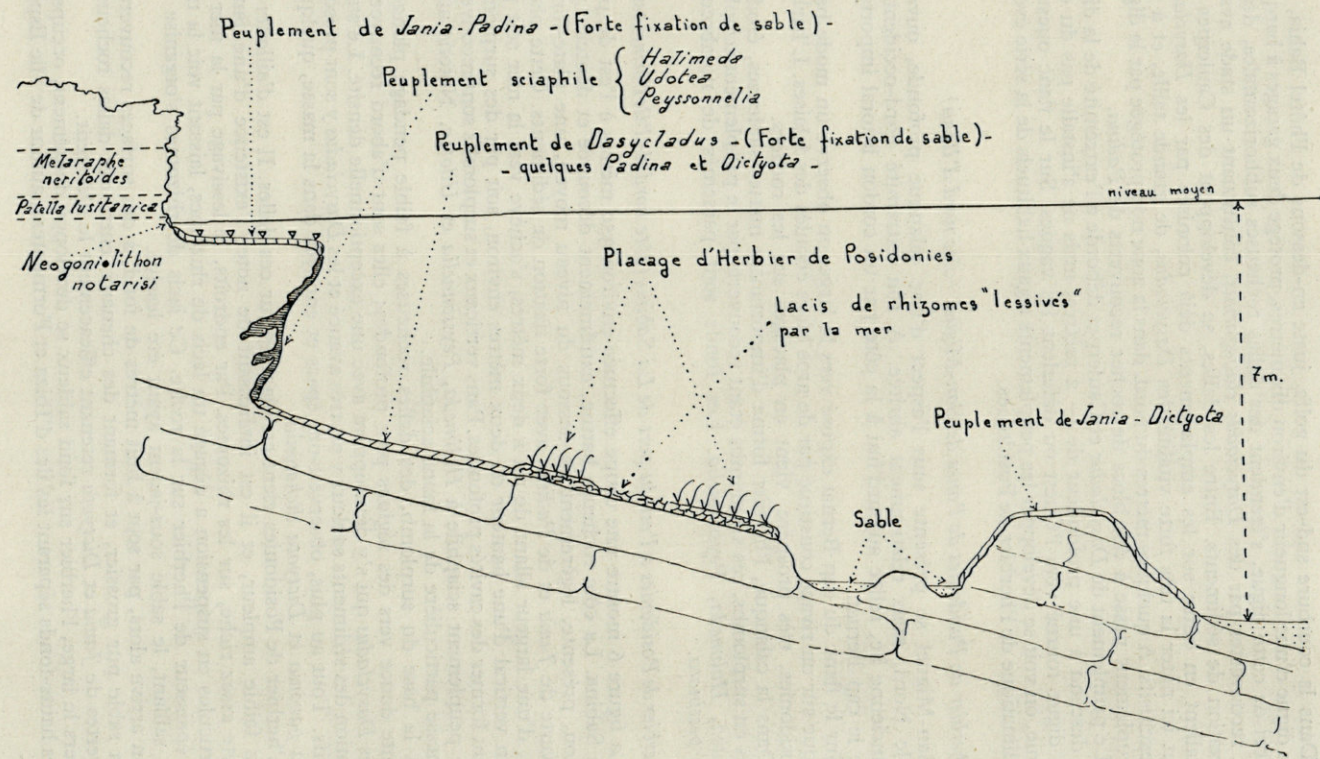 Peuplement de Jania-Padina -(Forte fixation de sable)-
Peuplement sciaphile { Halimeda
Udotea
Peyssonnelia
Peuplement de Dasycladus -(Forte fixation de sable)-
- quelques Padina et Dictyota -
Melaraphe
neritoides
Patella lusitanica
niveau moyen
Neogoniolithon
notarisi
Placage d'Herbier de Posidonies
Lacis de rhizomes "lessivés"
par la mer
7m.
Peuplement de Jania - Dictyota
Sable